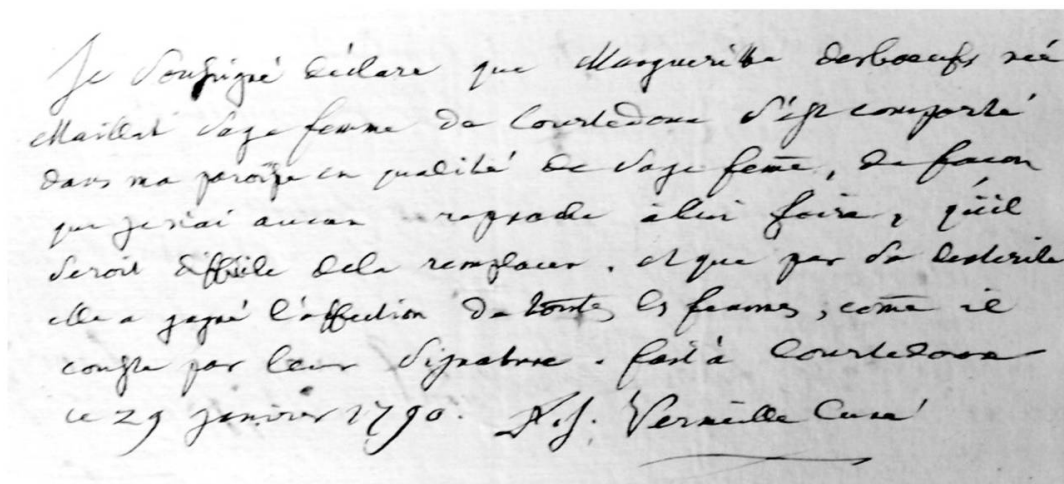 Je Sousigné déclare que Marguerithe desboeufs née
Maillat Sage femme de Courtedoux S'est comporté
dans ma paroisse en qualité de Sage feme, de facon
que je n'ai aucun reproche à lui faire, qu'il
Seroit difficile de la remplacer, et que par Sa dexterité
elle a gagné l'affection de toutes les femmes, come il
conste par leur Signature. fait à Courtedoux
ce 29 janvier 1790. Verneille Curé